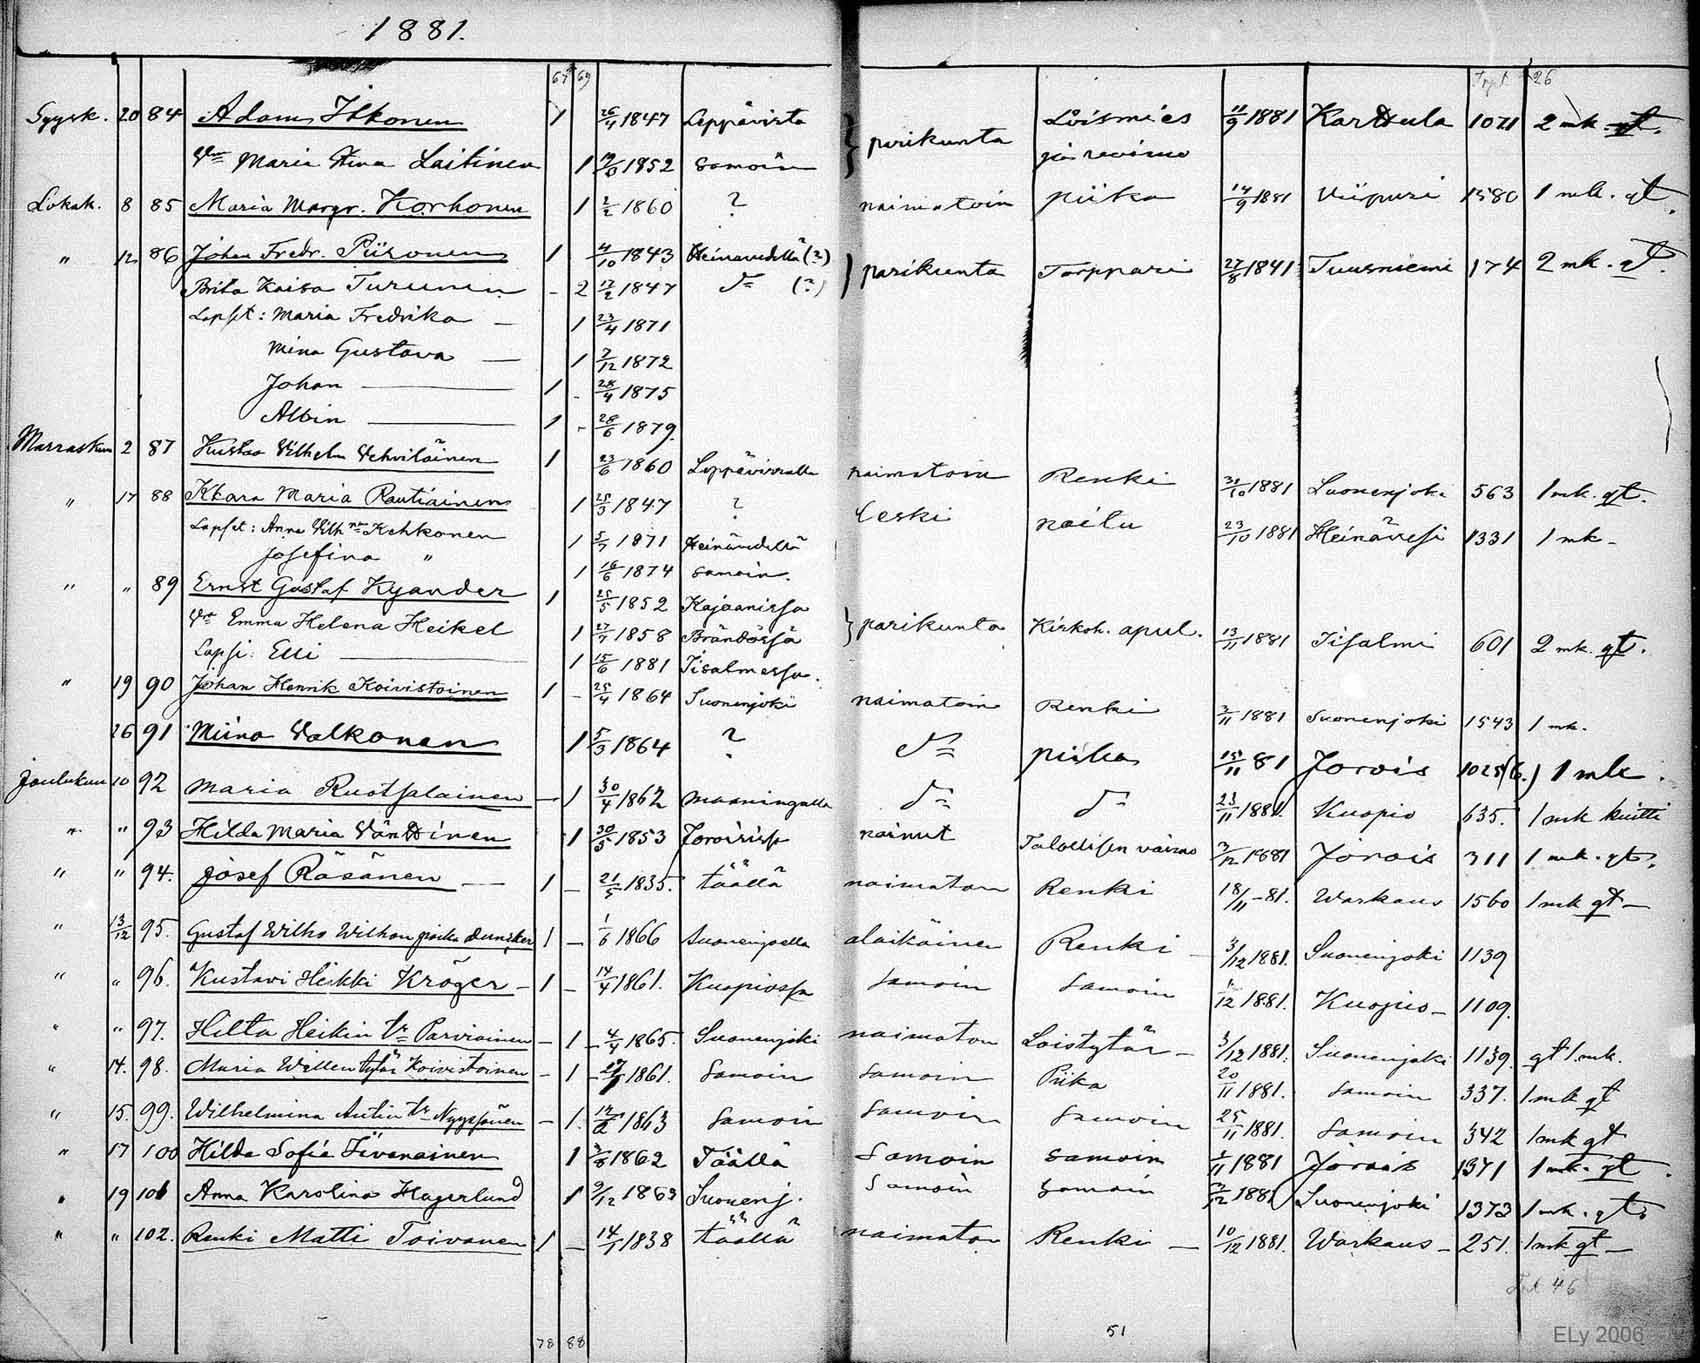 1881.
67 69 26
Syysk. 20 84 Adam Itkonen 1 26/4 1847 Leppävirta } parikunta Loismies 11/9 1881 Karttula 1071 2 mk. qt.
Vmo Maria Stina Laitinen 1 1852 samoin ja vaimo
Lokak. 8 85 Maria Margr. Korhonen 1 2/2 1860 ? naimatoin piika 14/9 1881 Viipuri 1580 1 mk. qt.
" 12 86 Johan Fredr. Piironen 1 4/10 1843 Heinävedellä (?) } parikunta Torppari 27/8 1841 Tuusniemi 174 2 mk. qt.
Brita Kaisa Turunen - 2 17/2 1847 do (?)
Lapset: Maria Fredrika — 1 23/4 1871
Mina Gustava — 1 7/12 1872
Johan — 1 - 28/4 1875
Albin — 1 - 28/6 1879.
Marraskuu 2 87 Kustaa Vilhelm Vehviläinen 1 23/6 1860 Leppävirralla naimatoin Renki 30/10 1881 Suonenjoki 563 1 mk. qt.
" 17 88 Klara Maria Rautiainen 1 1847 ? Leski naitu 23/10 1881 Heinävesi 1331 1 mk -
Lapset: Anna Vilhna Kehkonen 1 1871 Heinävedellä
Josefina " 1 16/6 1874 samoin.
" " 89 Ernst Gustaf Kyander 1 25/5 1852 Kajaanissa } parikunta Kirkoh. apul. 13/11 1881 Iisalmi 601 2 mk. qt.
Vmo Emma Helena Heikel 1 1858 Brändössä
Lapsi: Elli — 1 15/6 1881 Iisalmessa.
" 19 90 Johan Henrik Koivistoinen 1 - 25/4 1864 Suonenjoki naimatoin Renki 3/11 1881 Suonenjoki 1543 1 mk.
26 91 Miina Valkonen 1 5/3 1864 ? do piika 15/11 81 Jorois 1025 (6.) 1 mk.
Joulukuu 10 92 Maria Ruotsalainen — 1 30/4 1862 Maaningalla do do 23/11 1881. Kuopio 635. 1 mk kuitti
" " 93 Hilda Maria Vänttinen 1 30/5 1853 Joroisissa nainut Talollisen vaimo 3/12 1881 Jorois 311 1 mk. qt.
" " 94. Josef Räsänen — 1 — 21/5 1835. täällä naimaton Renki 18/11 -81. Warkaus 1560 1 mk qt —
" 13/12 95. Gustaf Wilho Wilhon poika Duncker 1 — 1/6 1866 Suonenjoella alaikäinen Renki — 3/12 1881. Suonenjoki 1139
" " 96. Kustavi Heikki Kröger — 1 — 14/4 1861. Kuopiossa Samoin Samoin 1/12 1881. Kuopio — 1109.
" " 97. Hilta Heikin tr Parviainen — 1 — 4/4 1865. Suonenjoki naimaton Loistytär — 3/12 1881. Suonenjoki 1139. qt 1 mk.
" 14. 98. Maria Willem tytär Koivistoinen — 1 — 1861. Samoin Samoin Piika 20/11 1881. samoin 337. 1 mk qt
" 15. 99. Wilhelmina Antin tr Nyyssönen — 1. 1863 Samoin Samoin Samoin 25/11 1881. Samoin 342 1 mk qt
" 17 100 Hilda Sofia Iivanainen 1 3/8 1862 Täällä Samoin samoin 1/11 1881 Jorois 1371 1 mk. qt
" 19 101 Anna Karolina Hagerlund 1 9/12 1863 Suonenj. Samoin Samoin 1881 Suonenjoki 1373 1 mk. qt.
" " 102. Renki Matti Toivanen 1 — 14/1 1838 täällä naimaton Renki — 10/12 1881. Warkaus — 251. 1 mk qt —
46
78 88
51
ELy 2006